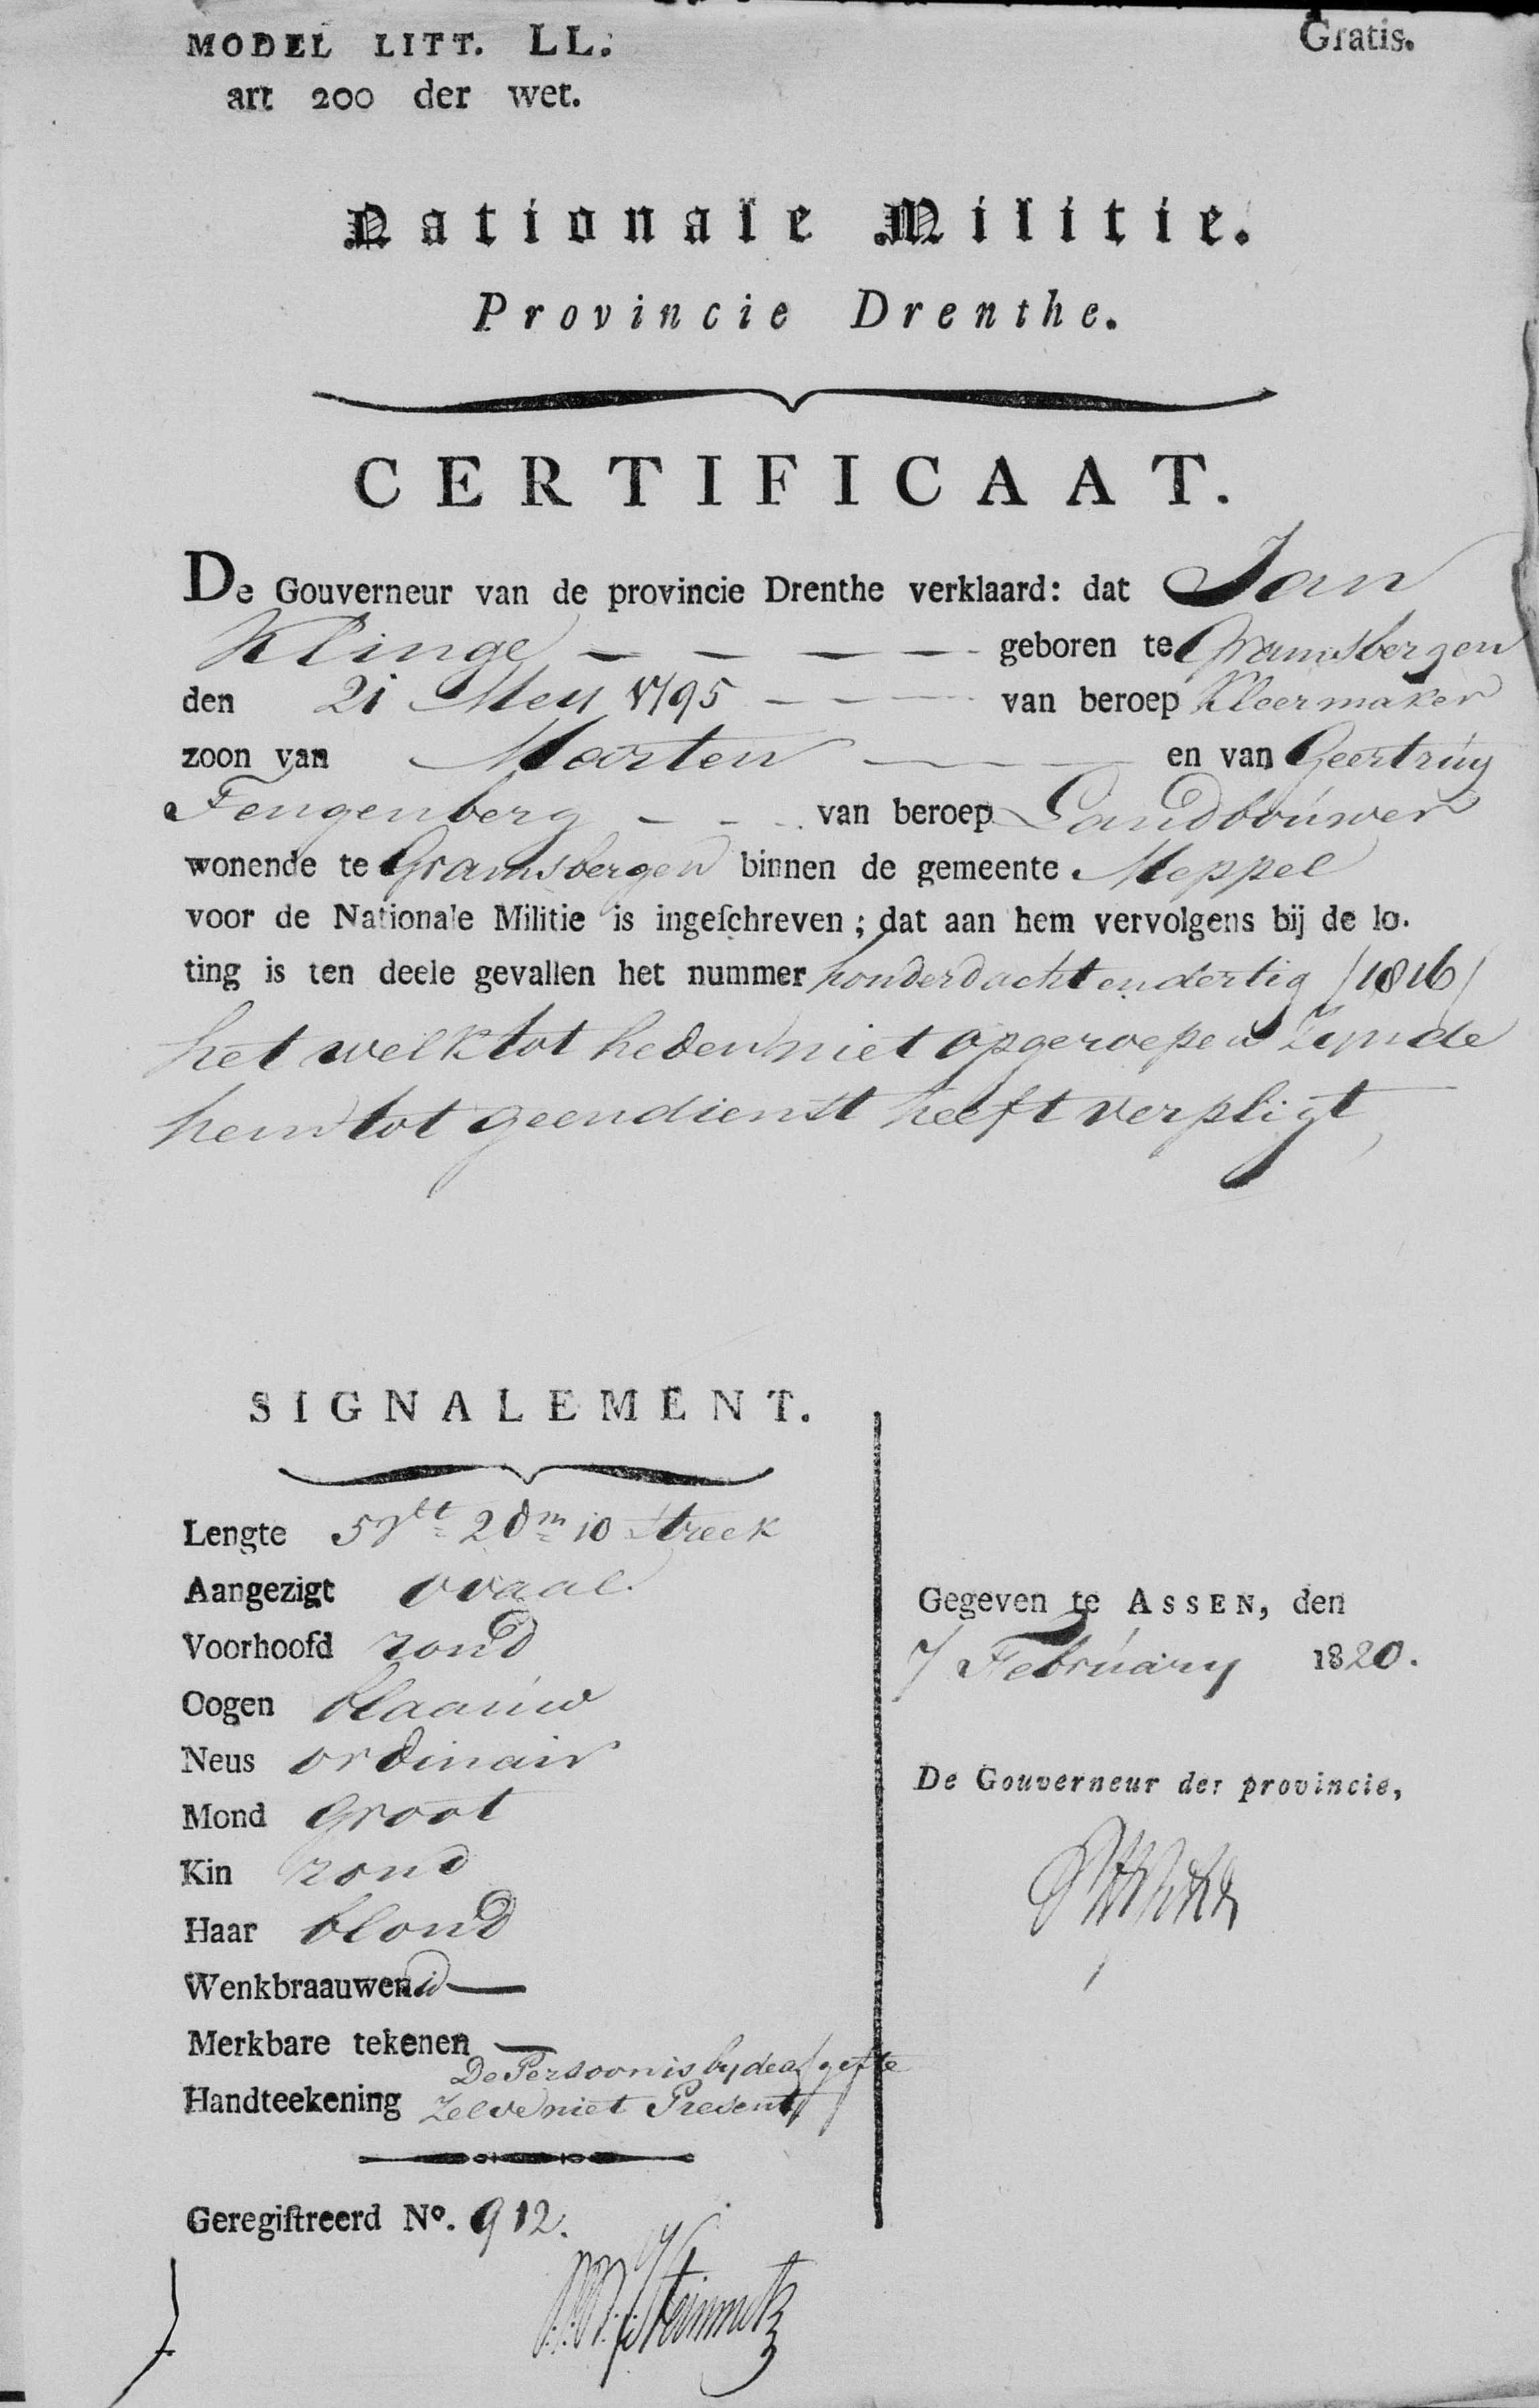 MODEL LITT. LL.
Gratis.
art 200 der wet.
Nationale Militie.
Provincie Drenthe.
CERTIFICAAT.
De Gouverneur van de provincie Drenthe verklaard: dat Jan
Klinge — — — — geboren te Gramsbergen
den 21 Mey 1795 — — van beroep Kleermaker
zoon van Marten — — en van Geertruy
Fengenberg — — van beroep Landbouwer
wonende te Gramsbergen binnen de gemeente Meppel
voor de Nationale Militie is ingeſchreven; dat aan hem vervolgens bij de lo.
ting is ten deele gevallen het nummer honderdachtendertig /1816/
het welk tot heden niet opgeroepen Zynde
hem tot geen dienst heeft verpligt,
SIGNALEMENT.
Lengte 5 Vtt 2 dm 10 Streek
Aangezigt ovaal.
Voorhoofd rond
Oogen blaauw
Neus ordinair
Mond groot
Kin rond
Haar blond
Wenkbraauwen id —
Merkbare tekenen —
Handteekening De Persoon is by de afgifte
Zelve niet Present
Geregiſtreerd No. 912.
Gegeven te ASSEN, den
7 February 1820.
De Gouverneur der provincie,